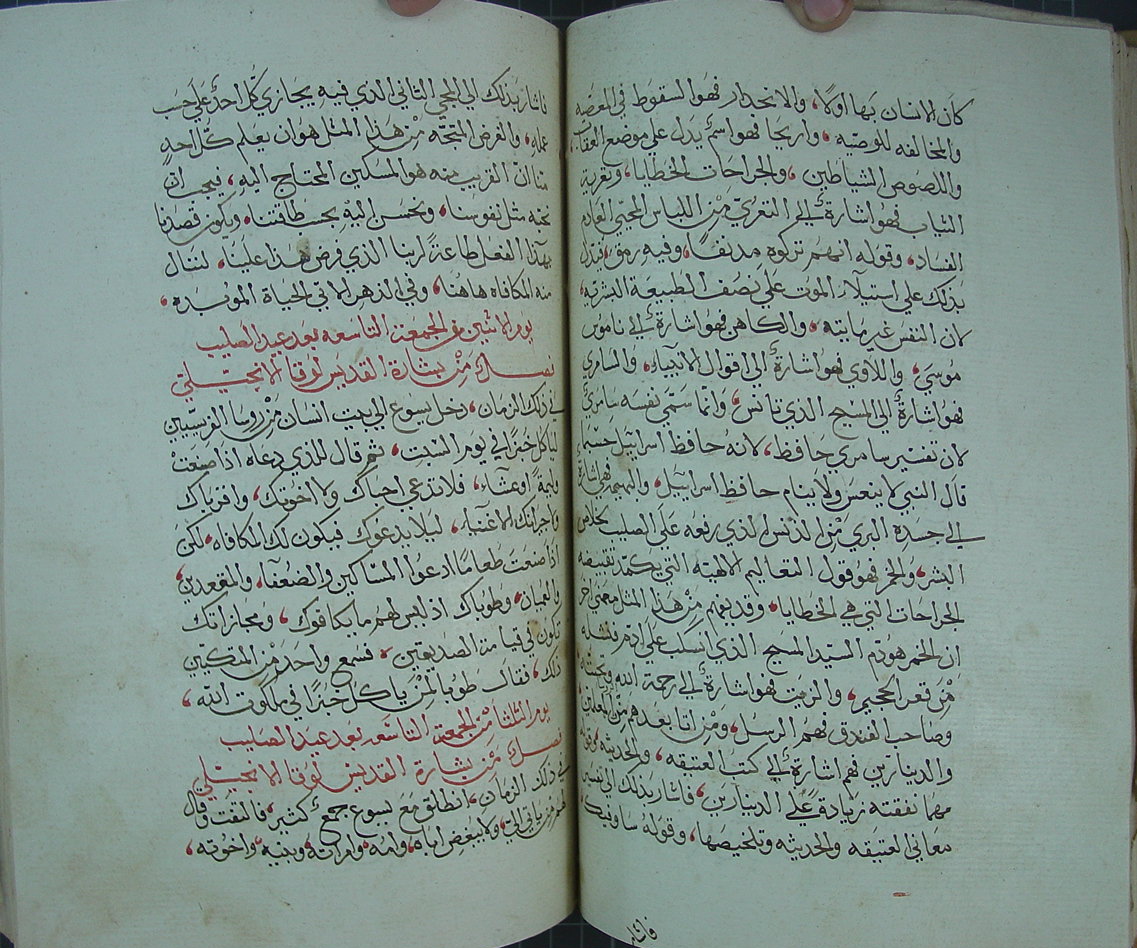 كان الانسان بها اولًا، والانحدار فهو السقوط في المعصيه
والمخالفه للوصيّه، واريحا فهو اسم يدل علي موضع العقاب
واللصوص الشياطين، والجراحات الخطايا، وتعرية
الثياب فهو اشارة الي التعري من اللباس المحيي العادم
الفساد، وقوله انهم تركوه مدنفًا، وفيه رمق، فيدل
بذلك علي استيلاء الموت علي نصف الطبيعة البشريه،
لان النفس غير مايته، والكاهن فهو اشارة الي ناموس
موسي، واللاوي فهو اشارة الي اقوال الانبياء، والسامري
فهو اشارة الي المسيح الذي تانس، وانما سمّي نفسه سامري
لان تفسير سامري حافظ، لانه حافظ اسراييل حسبما
قال النبي لا ينعس ولا ينام حافظ اسراييل، والبهيمه فهي اشارة
الي جسده البري من الدنس الذي رفعه علي الصليب لخلاص
البشر، والخمر فهو قول التعاليم الالهيه التي
الجراحات التي هي الخطايا، وقد يفهم من هذا المثل معني اخر
ان الخمر هو دم السيد المسيح الذي انسكب علي ادم
من قعر الجحيم، والزيت فهو اشارة الي رحمة الله ومحبته
وصاحب الفندق فهم الرسل، ومن اتا بعدهم من المعلمين،
والدينارين فهم اشارة الي كتب العتيقه، والحديثه، وقوله
مهما نفقته زيادة علي الدينارين، فاشار بذلك الي تفسير
معاني العتيقه والحديثه وتلخيصها، وقوله ساوفيك،
فاشار
فاشار بذلك الي المجي الثاني الذي فيه يجازي كل احد علي حسب
عمله، والغرض المتجه من هذا المثل هو ان يعلم كل احدٍ
منا انّ القريب منه هو المسكين المحتاج اليه، فيجب ان
نحبه مثل نفوسنا، ونحسن اليه بحسب طاقتنا، ويكون قصدنا
بهذا الفعل طاعةً لربنا الذي فرض هذا علينا، لننال
منه المكافاه هاهنا، وفي الدهر الاتي الحياة الموبده،
يوم الاثنين من الجمعة التاسعه بعد عيد الصليب
فصل من بشارة القديس لوقا الانجيلي
في ذلك الزمان، دخل يسوع الي بيت انسان من روسا الفريسيين
لياكل خبزًا في يوم السبت، ثم قال للذي دعاه اذا صنعت
وليمةً او عشاء، فلا تدعي احباك ولا اخوتك، واقرباك
وجيرانك الاغنياء، ليلا يدعوك فيكون لك المكافاه، لكن
اذا صنعت طعامًا ادعوا المساكين والضعفا، والمقعدين،
والعميان، وطوباك اذ ليس لهم ما يكافوك، ومجازاتك
تكون في قيامة الصديقين، فسمع واحد من المتكيين
ذلك، فقال طوبا لمن ياكل خبزًا في ملكوت الله،
يوم الثلثا من الجمعة التاسعه بعد عيد الصليب
فصل من بشارة القديس لوقا الانجيلي
في ذلك الزمان، انطلق مع يسوع جمع كثير، فالتفت وقال
لهم من ياتي اليّ، ولا يبغض اباه، وامه، وامراته، وبنيه، واخوته،